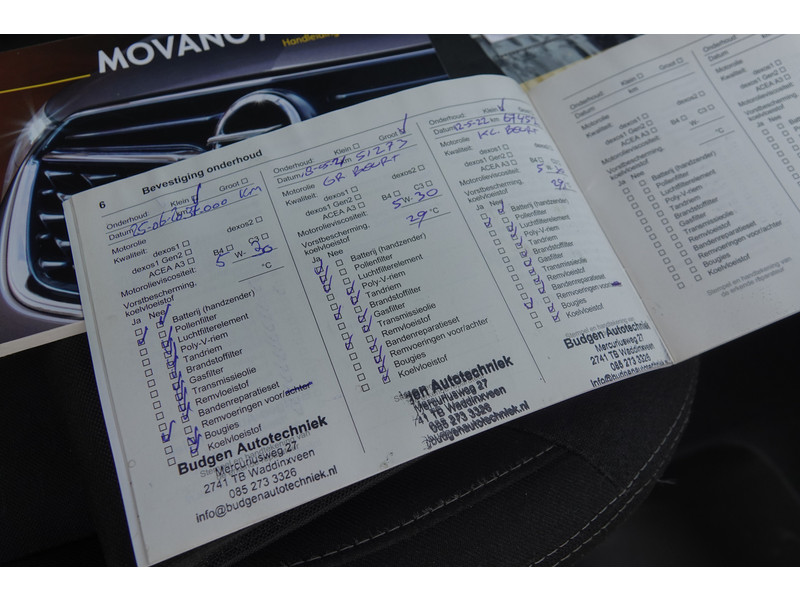 MOVANO
Handleiding
6
Bevestiging onderhoud
Onderhoud: Klein Groot
Datum 25-06 km 38.000 KM
Motorolie
Kwaliteit: dexos1 dexos2
dexos1 Gen2
ACEA A3 B4 C3
Motorolieviscositeit: 5 W- 30
Vorstbescherming.
koelvloeistof °C
Ja Nee
Batterij (handzender)
Pollenfilter
Luchtfilterelement
Poly-V-riem
Tandriem
Brandstoffilter
Gasfilter
Transmissieolie
Remvloeistof
Bandenreparatieset
Remvoeringen voor/achter
Bougies
Koelvloeistof
Budgen Autotechniek
Mercuriusweg 27
2741 TB Waddinxveen
085 273 3326
info@budgenautotechniek.nl
Onderhoud: Klein Groot
Datum km 51273
Motorolie GR BEURT
Kwaliteit: dexos1 dexos2
dexos1 Gen2
ACEA A3 B4 C3
Motorolieviscositeit: 5 W- 30
Vorstbescherming.
koelvloeistof 29 °C
Ja Nee
Batterij (handzender)
Pollenfilter
Luchtfilterelement
Poly-V-riem
Tandriem
Brandstoffilter
Gasfilter
Transmissieolie
Remvloeistof
Bandenreparatieset
Remvoeringen voor/achter
Bougies
Koelvloeistof
Autotechniek
Mercuriusweg 27
41 TB Waddinxveen
085 273 3326
budgenautotechniek.nl
Onderhoud: Klein Groot
Datum 12-5-22 km
Motorolie KL BEURT
Kwaliteit: dexos1 dexos2
dexos1 Gen2
ACEA A3 B4 C3
Motorolieviscositeit: 5 W- 30
Vorstbescherming.
koelvloeistof 29 °C
Ja Nee
Batterij (handzender)
Pollenfilter
Luchtfilterelement
Poly-V-riem
Tandriem
Brandstoffilter
Gasfilter
Transmissieolie
Remvloeistof
Bandenreparatieset
Remvoeringen voor
Bougies
Koelvloeistof
Budgen Autotechniek
Mercuriusweg 27
2741 TB Waddinxveen
085 273 3326
info@budgenautotechniek
Onderhoud: Klein Groot
Datum km
Motorolie
Kwaliteit: dexos1 dexos2
dexos1 Gen2
ACEA A3 B4 C3
Motorolieviscositeit: W-
Vorstbescherming.
koelvloeistof °C
Ja Nee
Batterij (handzender)
Pollenfilter
Luchtfilterelement
Poly-V-riem
Tandriem
Brandstoffilter
Gasfilter
Transmissieolie
Remvloeistof
Bandenreparatieset
Remvoeringen voor/achter
Bougies
Koelvloeistof
Stempel en handtekening van
de erkende reparateur
Onderhoud:
Datum
Motorolie
Kwaliteit: dexos1
dexos1 Gen2
ACEA A3
Motorolieviscositeit:
Vorstbescherming.
koelvloeistof
Ja Nee